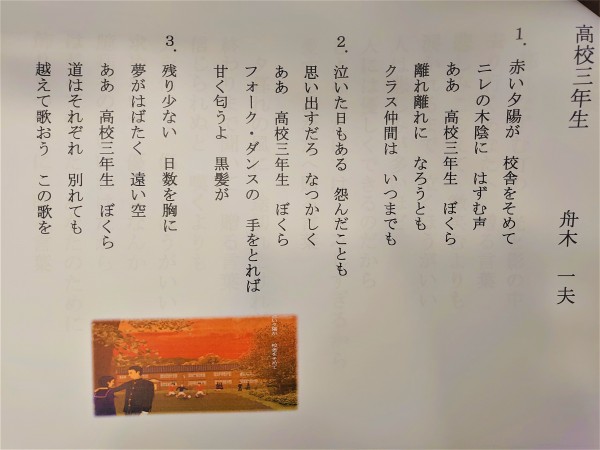 高校三年生
舟木 一夫
1. 赤い夕陽が 校舎をそめて
ニレの木陰に はずむ声
ああ 高校三年生 ぼくら
離れ離れに なろうとも
クラス仲間は いつまでも
2. 泣いた日もある 怨んだことも
思い出すだろ なつかしく
ああ 高校三年生 ぼくら
フォーク・ダンスの 手をとれば
甘く匂うよ 黒髪が
3. 残り少ない 日数を胸に
夢がはばたく 遠い空
ああ 高校三年生 ぼくら
道はそれぞれ 別れても
越えて歌おう この歌を